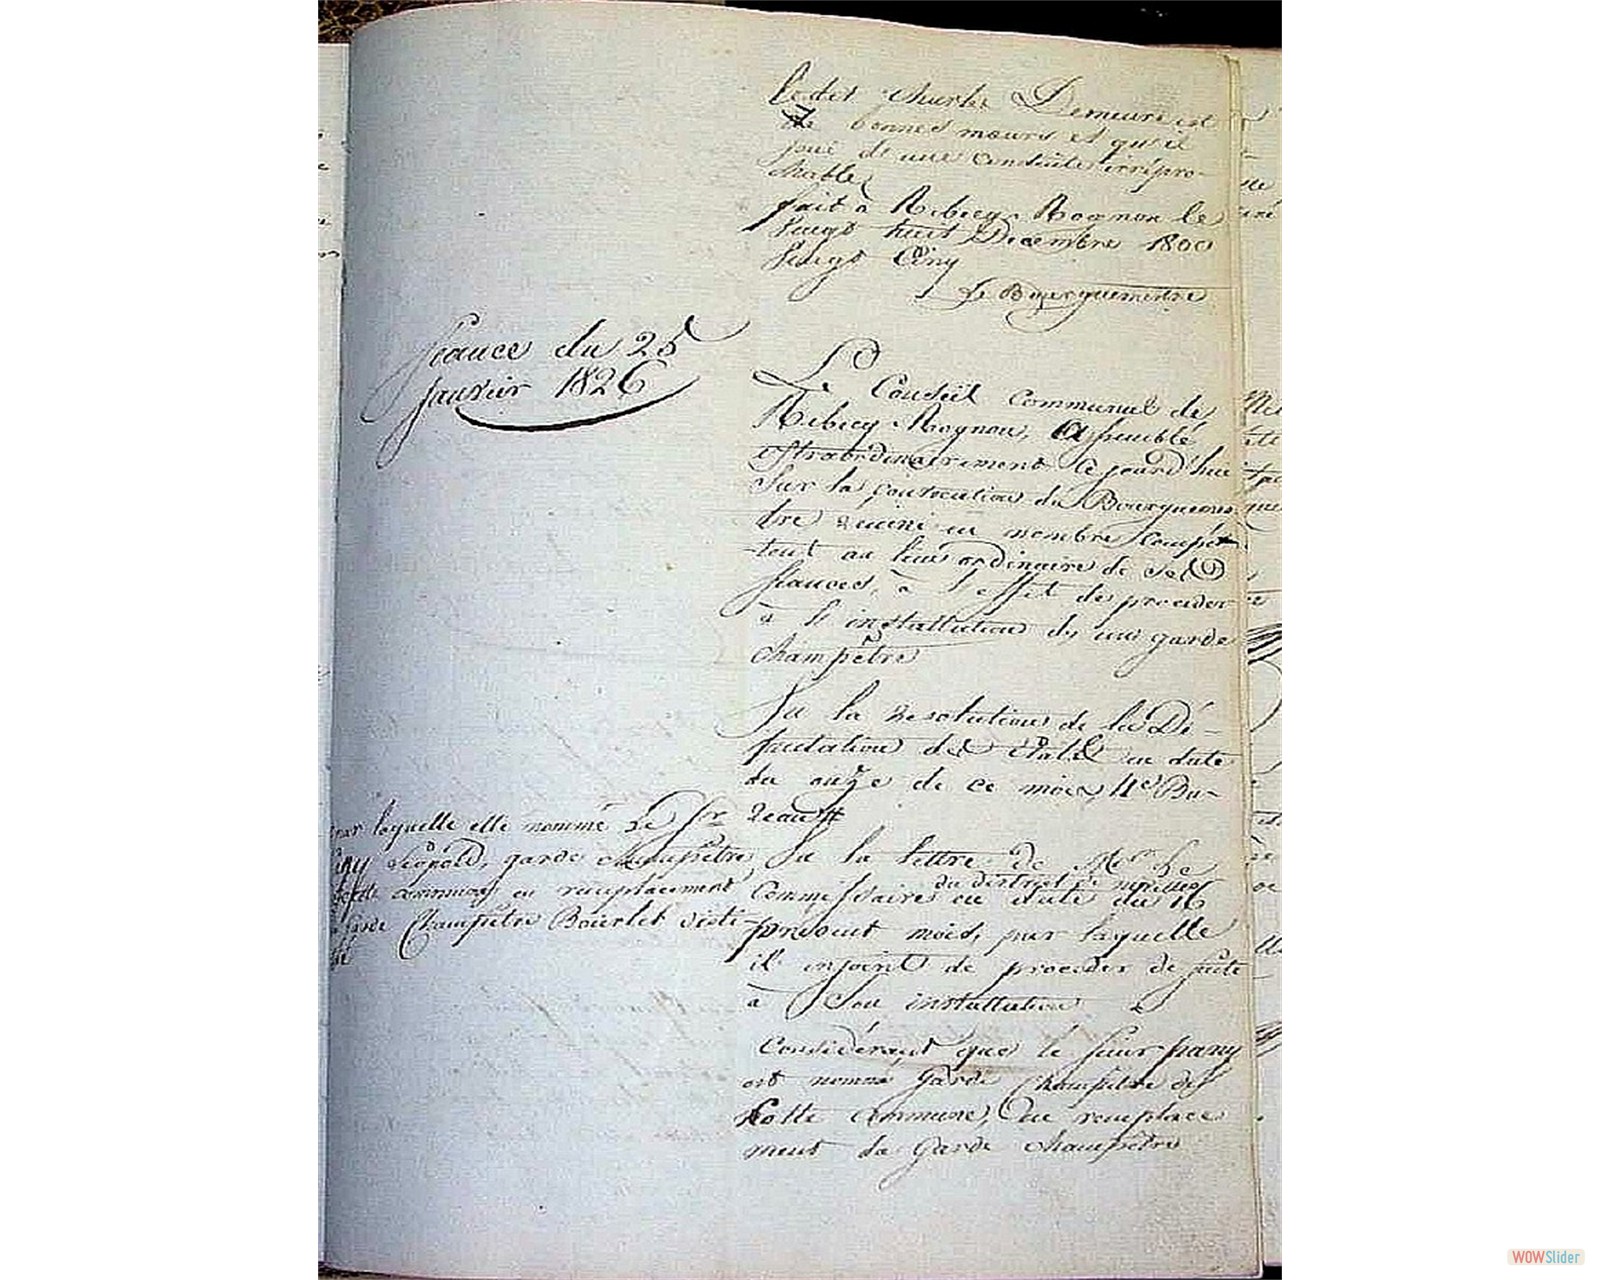 Ledit Charles Demeure est
de bonnes mœurs et qu'il
joui d'une conduite irrépro-
chable
fait à Rebecq-Rognon le
Vingt huit Decembre 1800
Vingt Cinq
Le Bourguemestre
Séance du 25
Janvier 1826
Le Conseil Communal de
Rebecq-Rognon, Assemblé
Extraordinairement ce jourd'hui
Sur la Convocation du Bourguemes
tre réuni en nombre compé-
-tent au lieu ordinaire de ses
séances, à l'effet de proceder
à l'installation d'un garde
champêtre
Vu la resolution de la Dé-
putation des états en date
du onze de ce mois, 4e Bu-
reau #
par laquelle elle nomme Le Sr
Léopold, garde champêtre
commune en remplacement
garde Champêtre Bourlet
Vu la lettre de Mr Le
Commissaire du district de Nivelles en date du 16
présent mois, par laquelle
il enjoint de proceder de suite
à Son installation
Considérant que le sieur pany
est nommé Garde Champêtre de
cette commune, en remplace
ment du Garde champêtre
WOWSlider